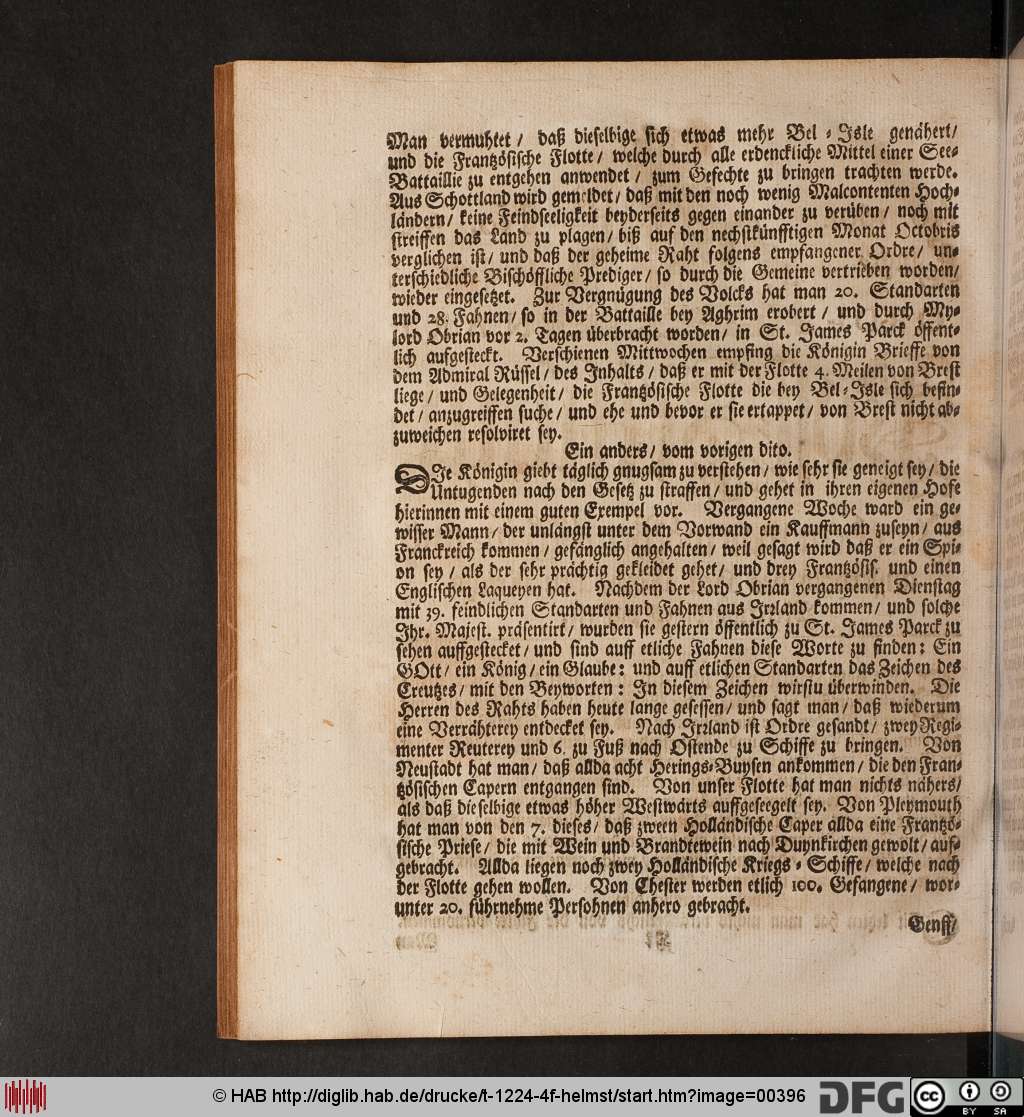 Man vermuhtet / daß dieselbige sich etwas mehr Bel-Isle genähert /
und die Frantzösische Flotte / welche durch alle erdenckliche Mittel einer See-
Battaillie zu entgehen anwendet / zum Gefechte zu bringen trachten werde.
Aus Schottland wird gemeldet / daß mit den noch wenig Malcontenten Hoch-
ländern / keine Feindseeligkeit beyderseits gegen einander zu verüben / noch mit
streiffen das Land zu plagen / biß auf den nechstkünfftigen Monat Octobris
verglichen ist / und daß der geheime Raht folgens empfangener Ordre / un-
terschiedliche Bischöffliche Prediger / so durch die Gemeine vertrieben worden /
wieder eingesetzet. Zur Vergnügung des Volcks hat man 20. Standarten
und 28. Fahnen / so in der Battaille bey Aghrim erobert / und durch My-
lord Obrian vor 2. Tagen überbracht worden / in St. James Parck öffent-
lich aufgesteckt. Verschienen Mittwochen empfing die Königin Brieffe von
dem Admiral Rüssel / des Inhalts / daß er mit der Flotte 4. Meilen von Brest
liege / und Gelegenheit / die Frantzösische Flotte die bey Bel-Isle sich befin-
det / anzugreiffen suche / und ehe und bevor er sie ertappet / von Brest nicht ab-
zuweichen resolviret sey.
Ein anders / vom vorigen dito.
DIe Königin giebt täglich gnugsam zu verstehen / wie sehr sie geneigt sey / die
Untugenden nach den Gesetz zu straffen / und gehet in ihren eigenen Hofe
hierinnen mit einem guten Exempel vor. Vergangene Woche ward ein ge-
wisser Mann / der unlängst unter dem Vorwand ein Kauffmann zuseyn / aus
Franckreich kommen / gefänglich angehalten / weil gesagt wird daß er ein Spi-
on sey / als der sehr prächtig gekleidet gehet / und drey Frantzösis. und einen
Englischen Laqueyen hat. Nachdem der Lord Obrian vergangenen Dienstag
mit 39. feindlichen Standarten und Fahnen aus Irrland kommen / und solche
Ihr. Majest. präsentirt / wurden sie gestern öffentlich zu St. James Parck zu
sehen auffgestecket / und sind auff etliche Fahnen diese Worte zu finden: Ein
GOtt / ein König / ein Glaube: und auff etlichen Standarten das Zeichen des
Creutzes / mit den Beyworten: In diesem Zeichen wirstu überwinden. Die
Herren des Rahts haben heute lange gesessen / und sagt man / daß wiederum
eine Verrähterey entdecket sey. Nach Irrland ist Ordre gesandt / zwey Regi-
menter Reuterey und 6. zu Fuß nach Ostende zu Schiffe zu bringen. Von
Neustadt hat man / daß allda acht Herings-Buysen ankommen / die den Fran-
tzösischen Capern entgangen sind. Von unser Flotte hat man nichts nähers /
als daß dieselbige etwas höher Westwärts auffgeseegelt sey. Von Pleymouth
hat man von den 7. dieses / daß zween Holländische Caper allda eine Frantzö-
sische Priese / die mit Wein und Brandtewein nach Duynkirchen gewolt / auf-
gebracht. Allda liegen noch zwey Holländische Kriegs-Schiffe / welche nach
der Flotte gehen wollen. Von Chester werden etlich 100. Gefangene / wor-
unter 20. führnehme Persohnen anhero gebracht.
Genff /
© HAB http://diglib.hab.de/drucke/t-1224-4f-helmst/start.htm?image=00396
DFG
cc
BY SA